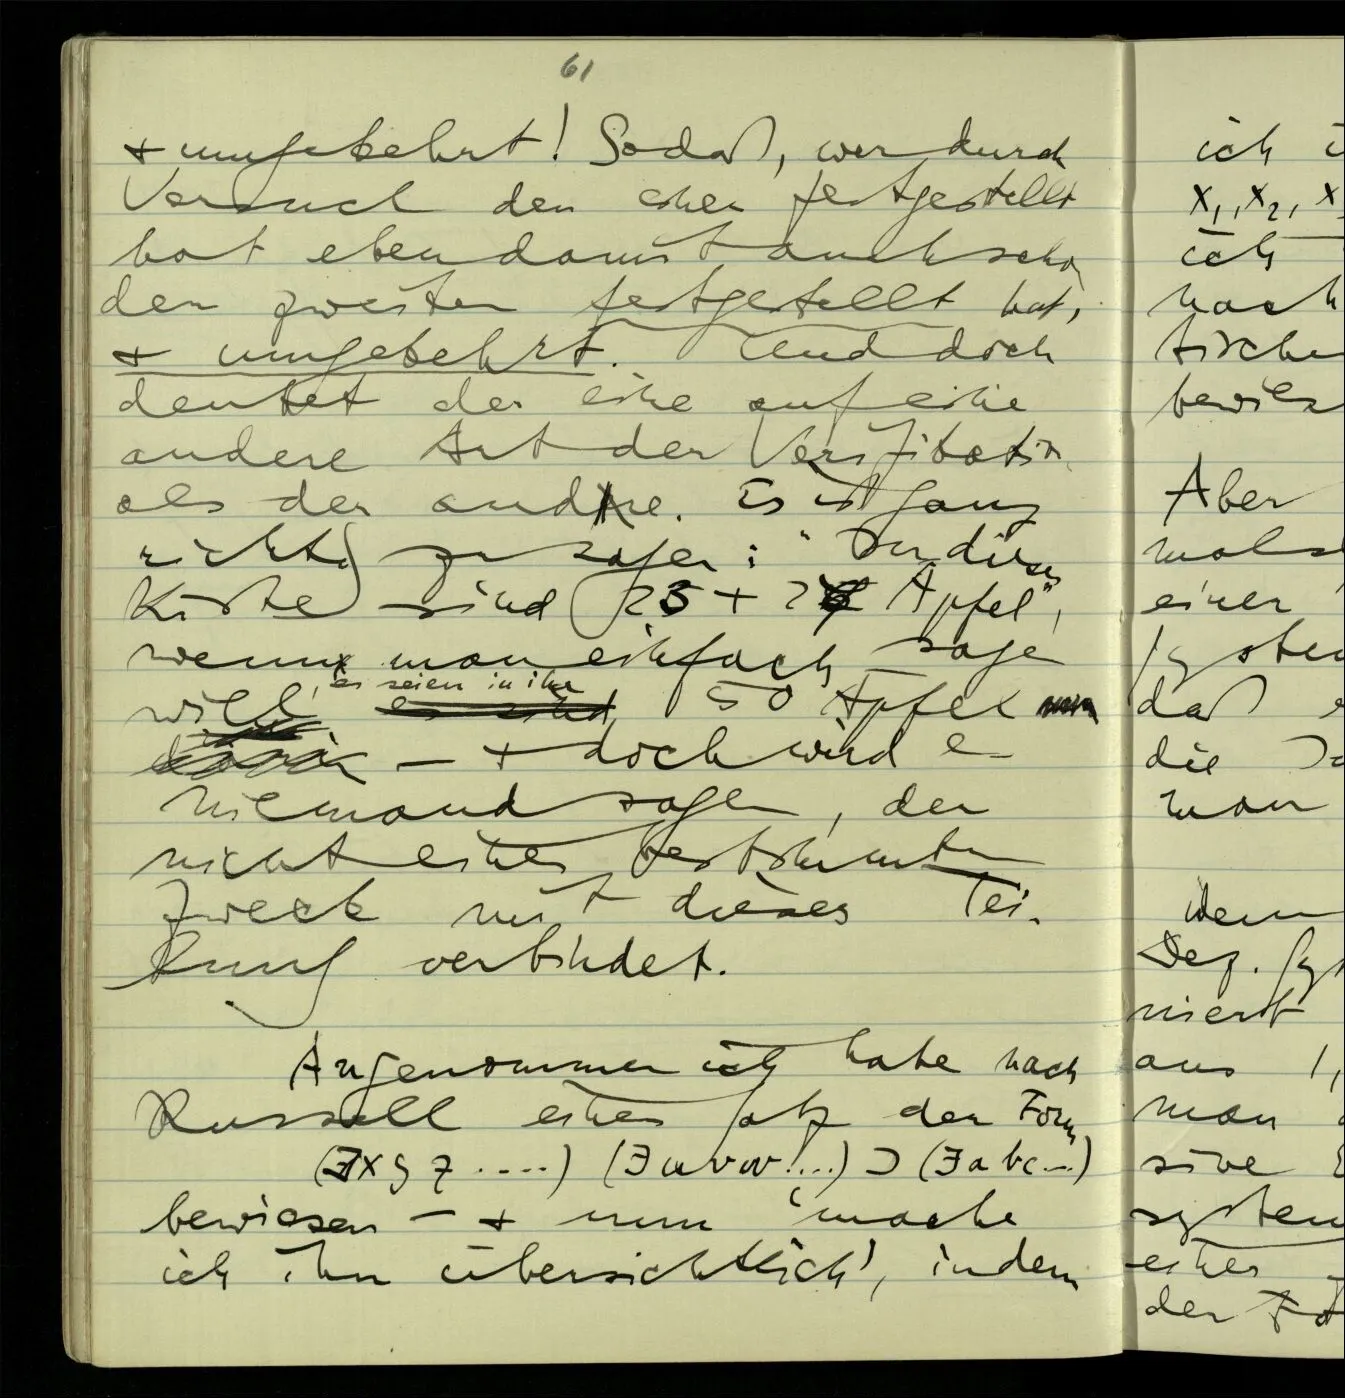 61
& umgekehrt! Sodaß, wer durch
Versuch den einen festgestellt
hat ebendamit auch schon
den zweiten festgestellt hat,
& umgekehrt. Und doch
deutet der eine auf eine
andere Art der Verifikation
als der andre. Es ist ganz
richtig zu sagen: "In dieser
Kiste sind 25 + 25 Äpfel",
wenn man einfach sagen
will, es seien in ihr 50 Äpfel
– & doch wird es
niemand sagen, der
nicht einen bestimmten
Zweck mit dieser Tei-
lung verbindet.
Angenommen ich habe nach
Russell einen Satz der Form
(∃xyz.....) (∃uvw....) ⊃ (∃abc...)
bewiesen – & nun 'mache
ich ihn übersichtlich', indem
ich
x₁, x₂, x
ich
nach
bewies
Aber
einer
daß
die
man
Dez.
aus 1,
man
sive
system
eines
der